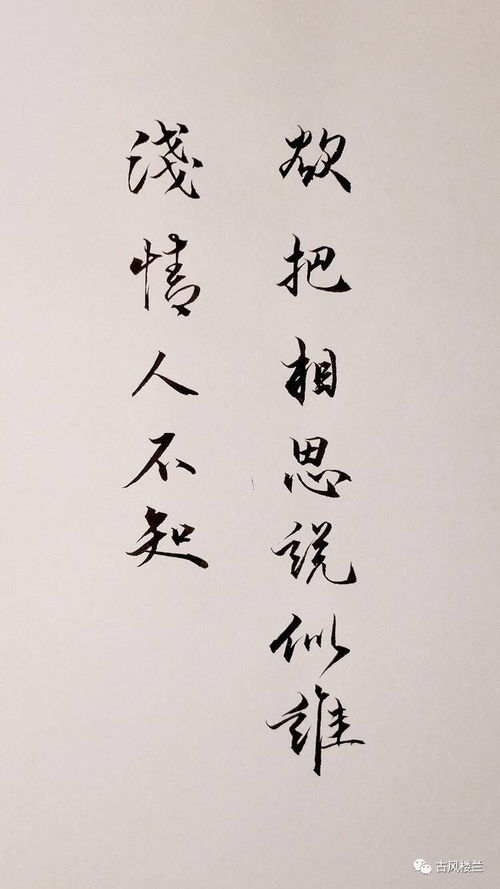 欲把相思説似誰
淺情人不知
古风楼兰